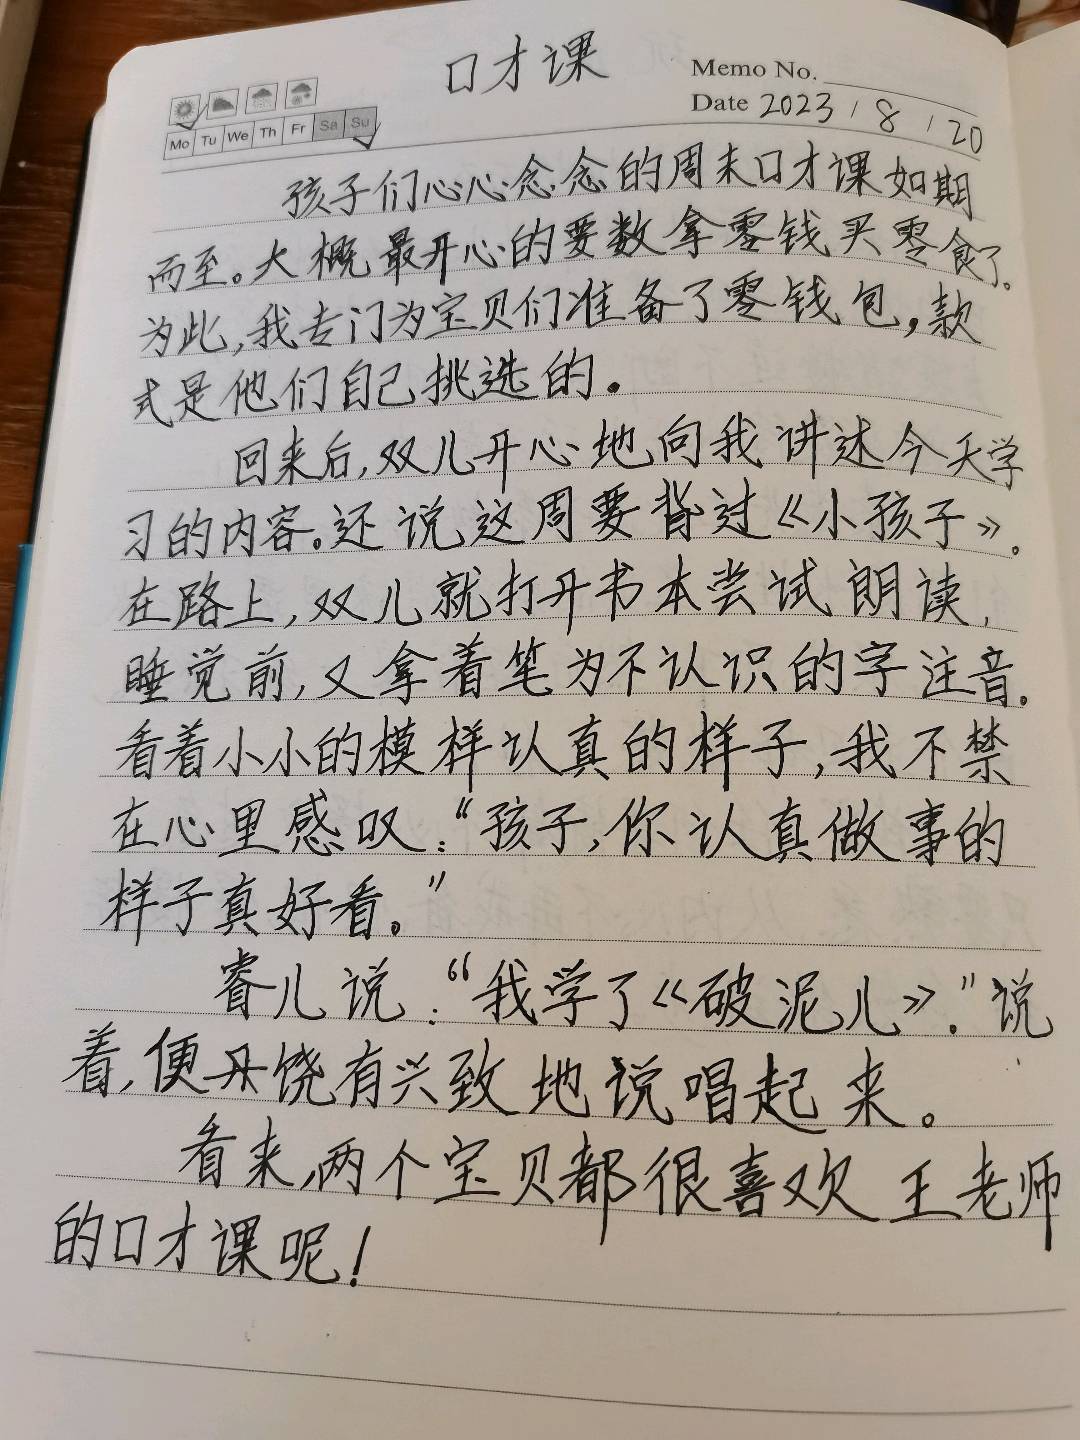 口才课
Memo No.
Date 2023 / 8 / 20
Mo Tu We Th Fr Sa Su
孩子们心心念念的周末口才课如期
而至。大概最开心的要数拿零钱买零食了。
为此,我专门为宝贝们准备了零钱包,款
式是他们自己挑选的。
回来后,双儿开心地向我讲述今天学
习的内容。还说这周要背过《小孩子》。
在路上,双儿就打开书本尝试朗读,
睡觉前,又拿着笔为不认识的字注音。
看着小小的模样认真的样子,我不禁
在心里感叹:“孩子,你认真做事的
样子真好看。”
睿儿说:“我学了《破泥儿》。”说
着,便饶有兴致地说唱起来。
看来,两个宝贝都很喜欢王老师
的口才课呢!